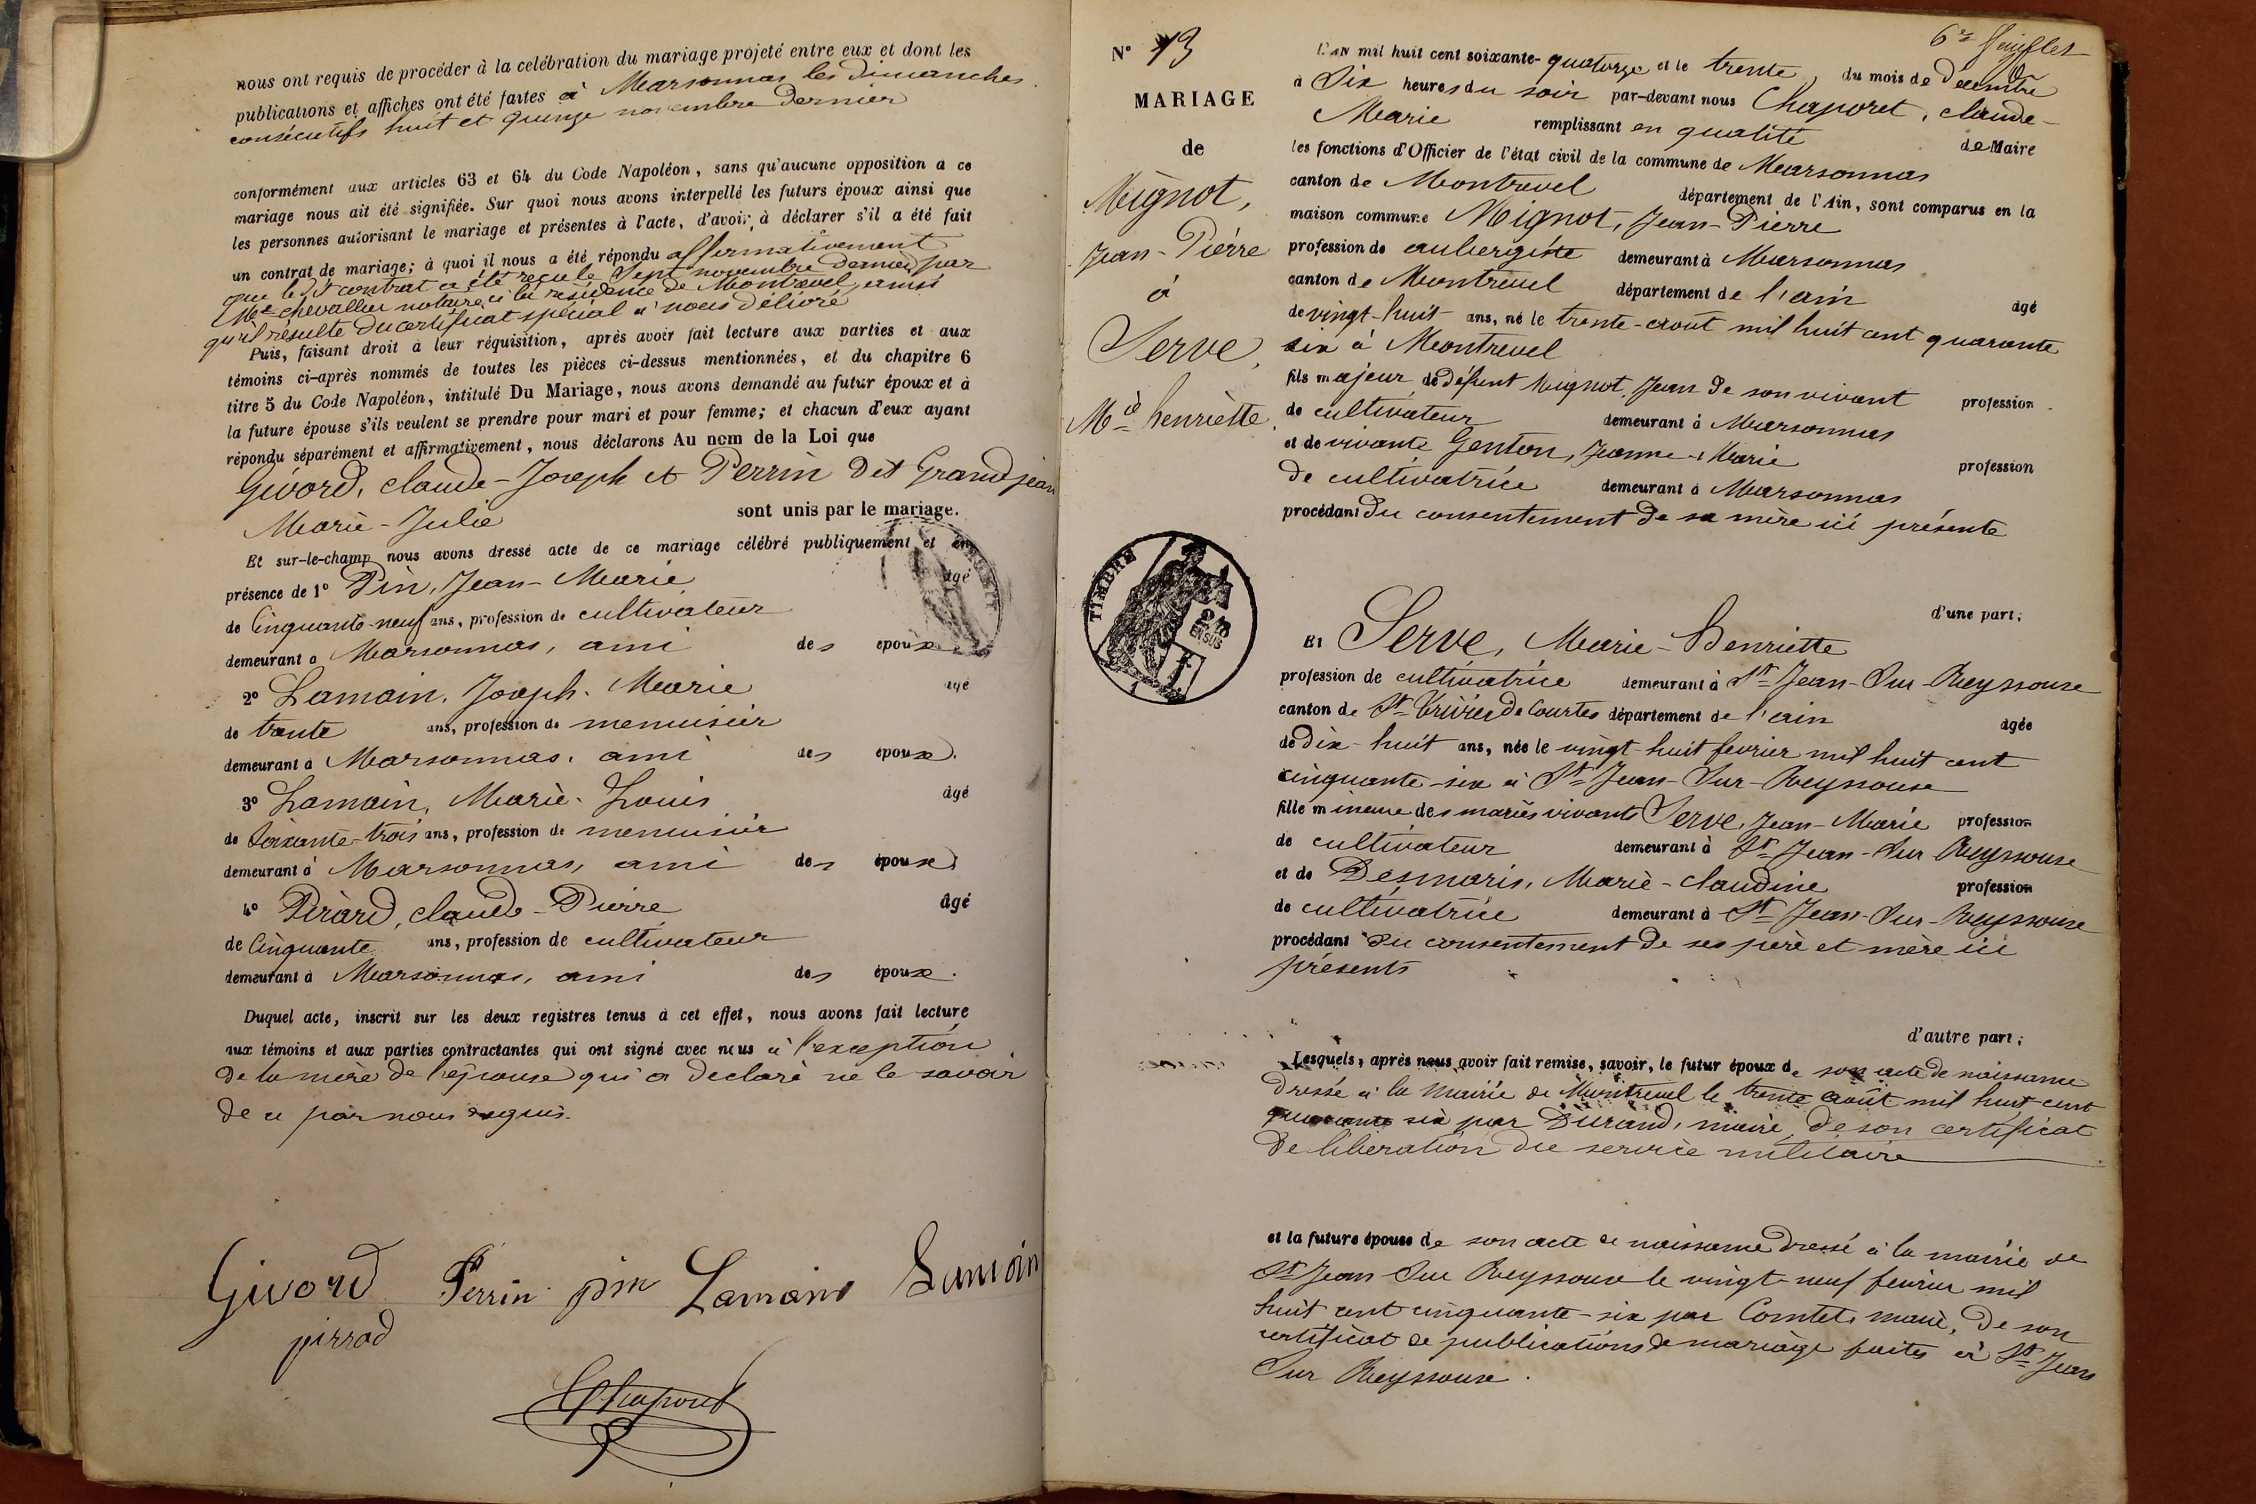 nous ont requis de procéder à la celébration du mariage projeté entre eux et dont les
publications et affiches ont été faites à Marsonnas les dimanches
consécutifs huit et quinze novembre dernier
conformément aux articles 63 et 64 du Code Napoléon, sans qu'aucune opposition a ce
mariage nous ait été signifiée. Sur quoi nous avons interpellé les futurs époux ainsi que
les personnes autorisant le mariage et présentes à l'acte, d'avoir à déclarer s'il a été fait
un contrat de mariage; à quoi il nous a été répondu affirmativement
que le dt contrat a été reçu le sept novembre dernier par
Me chevallier notaire à la résidence de Montrevel, ainsi
qu'il résulte du certificat spécial à nous délivré
Puis, faisant droit à leur réquisition, après avoir fait lecture aux parties et aux
témoins ci-après nommés de toutes les pièces ci-dessus mentionnées, et du chapitre 6
titre 5 du Code Napoléon, intitulé Du Mariage, nous avons demandé au futur époux et à
la future épouse s'ils veulent se prendre pour mari et pour femme; et chacun d'eux ayant
répondu séparément et affirmativement, nous déclarons Au nom de la Loi que
Givord, claude-Joseph et Perrin dit Grandjean
Marie-Julie sont unis par le mariage.
Et sur-le-champ nous avons dressé acte de ce mariage célébré publiquement et en
présence de 1° Pin, Jean-Marie âgé
de Cinquante-neuf ans, profession de cultivateur
demeurant à Marsonnas, ami des époux
2° Lamain, Joseph-Marie âgé
de trente ans, profession de menuisier
demeurant à Marsonnas, ami des époux.
3° Lamain, Marie-Louis âgé
de Soixante-trois ans, profession de menuisier
demeurant à Marsonnas, ami des époux
4° Pirard, claude-Pierre âgé
de Cinquante ans, profession de cultivateur
demeurant à Marsonnas, ami des époux.
Duquel acte, inscrit sur les deux registres tenus à cet effet, nous avons fait lecture
aux témoins et aux parties contractantes qui ont signé avec nous à l'exception
de la mère de l'épouse qui a déclaré ne le savoir
de ce par nous requis.
Givord Perrin pin Lamain Lamain
pirrad
Chaporet
6e feuillet
N° 13
MARIAGE
de
Mignot,
Jean-Pierre
à
Serve,
Mie henriette.
TIMBRE
L'AN mil huit cent soixante-quatorze et le trente du mois de décembre
à Six heures du soir par-devant nous Chaporet, claude-
Marie remplissant en qualité de Maire
les fonctions d'Officier de l'état civil de la commune de Marsonnas
canton de Montrevel département de l'Ain, sont comparus en la
maison commune Mignot, Jean-Pierre
profession de aubergiste demeurant à Marsonnas
canton de Montrevel département de l'ain âgé
de vingt-huit ans, né le trente-août mil huit cent quarante
six à Montrevel
fils majeur de défunt Mignot, Jean de son vivant profession
de cultivateur demeurant à Marsonnas
et de vivante Genton, Jeanne-Marie profession
de cultivatrice demeurant à Marsonnas
procédant du consentement de sa mère ici présente
d'une part;
Et Serve, Marie-Henriette
profession de cultivatrice demeurant à St Jean-Sur-Reyssouse
canton de St Trivier de Courtes département de l'ain âgée
de dix-huit ans, née le vingt-huit fevrier mil huit cent
cinquante-six à St Jean-Sur-Reyssouse
fille mineure des mariés vivants Serve, Jean-Marie profession
de cultivateur demeurant à St Jean-Sur Reyssouse
et de Desmaris, Marie-claudine profession
de cultivatrice demeurant à St Jean-Sur-Reyssouse
procédant du consentement de ses père et mère ici
présents
d'autre part;
Lesquels, après nous avoir fait remise, savoir, le futur époux de son acte de naissance
dressé à la mairie de Montrevel le trente août mil huit cent
quarante six par Durand, maire, de son certificat
de libération du service militaire
et la future épouse de son acte de naissance dressé à la mairie de
St Jean Sur Reyssouse le vingt-neuf fevrier mil
huit cent cinquante-six par Comtet, maire, de son
certificat de publications de mariage faites à St Jean
Sur Reyssouse.